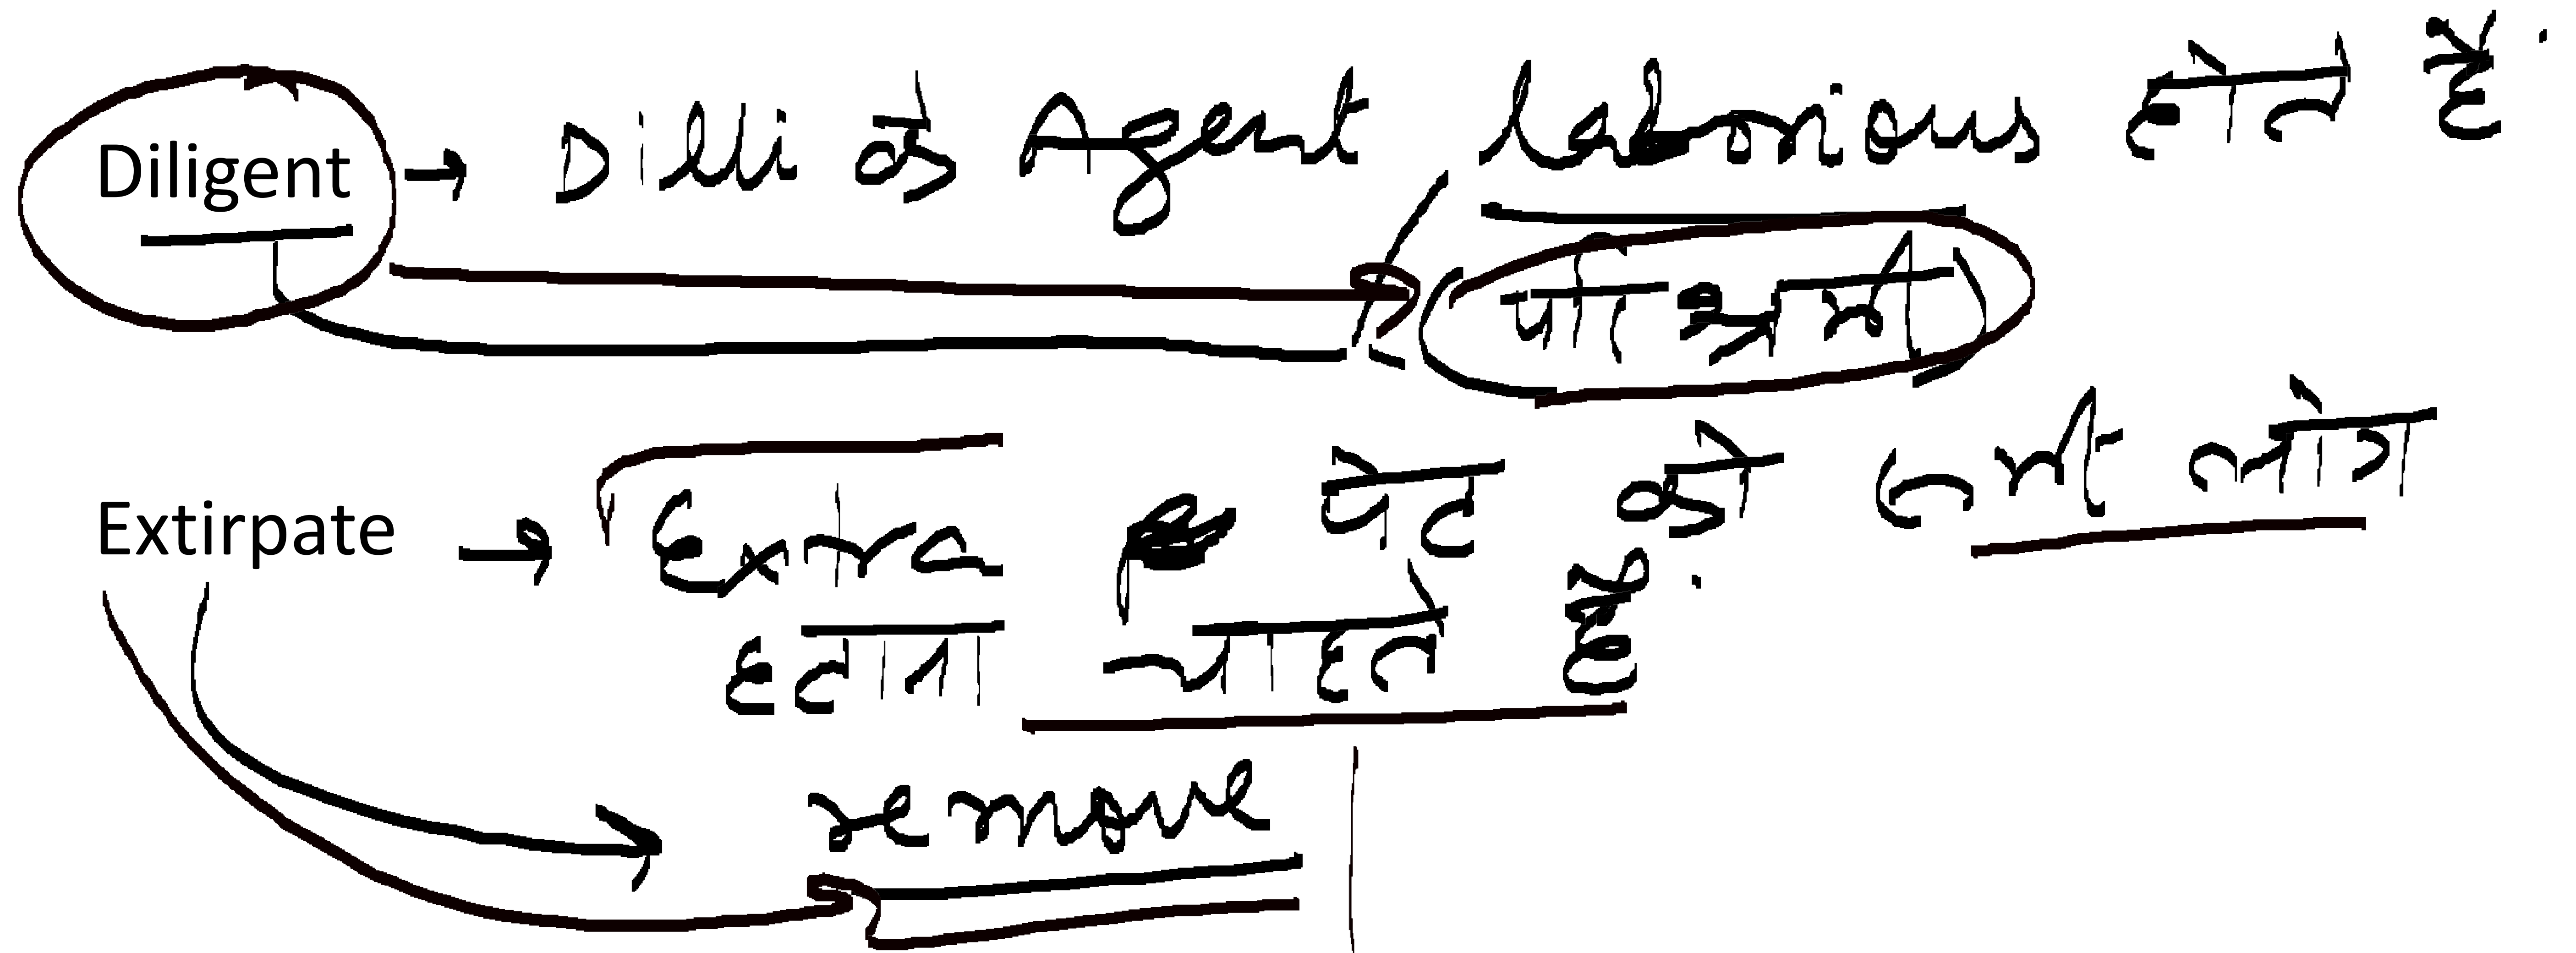 Diligent → Dilli के Agent laborious होते हैं.
(परिश्रमी)
Extirpate → Extra पेट को सभी लोग
हटाना चाहते हैं.
remove